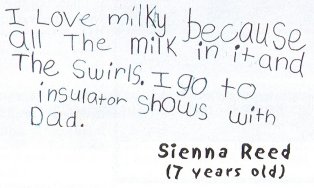 I Love milky because
all The milk in it and
The Swirls. I go to
insulator Shows with
Dad.
Sienna Reed
(7 years old)